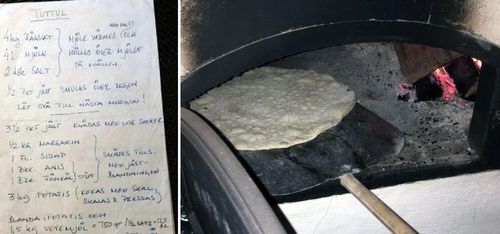 TUTTUL
4 kg RÅGSIKT
MJÖL VÄRMES OCH
4 L MJÖLK
HÄLLES ÖVER MJÖLET
2 dl SALT
PÅ KVÄLLEN.
½ PKT JÄST SMULAS ÖVER DEGEN
LÅT STÅ TILL NÄSTA MORGON!
3½ PKT JÄST KNÅDAS MED LITE SOCKER
½ KG MARGARIN
1 FL. SIRAP
SMÄLTES TILLS.
1 BRK. ANIS
MED JÄST-
1 BRK. FÄNKÅL
STÖTT
BLANDNINGEN
3 kg POTATIS
KOKAS MED SKAL,
SKALAS & PRESSAS
BLANDA I POTATIS OCH
VETEMJÖL = 750 gr